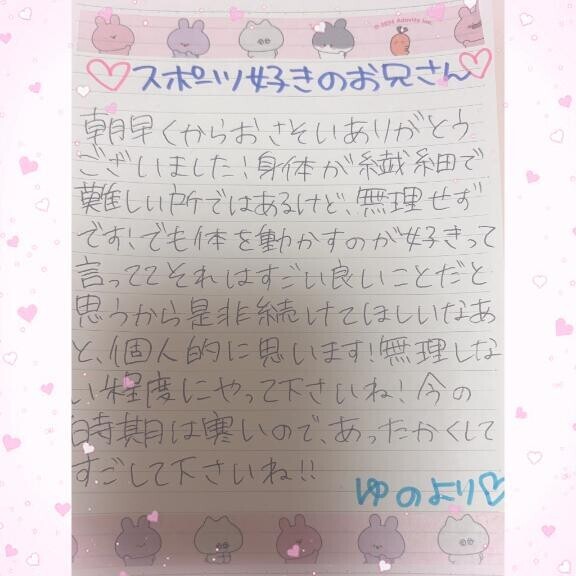 © 2024 Adovity Inc.
♡スポーツ好きのお兄さん♡
朝早くからおさそいありがとう
ございました！身体が繊細で
難しい所ではあるけど、無理せず
です！でも体を動かすのが好きって
言っててそれはすごい良いことだと
思うから是非続けてほしいなあ
と、個人的に思います！無理しな
い程度にやって下さいね！今の
時期は寒いので、あったかくして
すごして下さいね！！
ゆのより♡